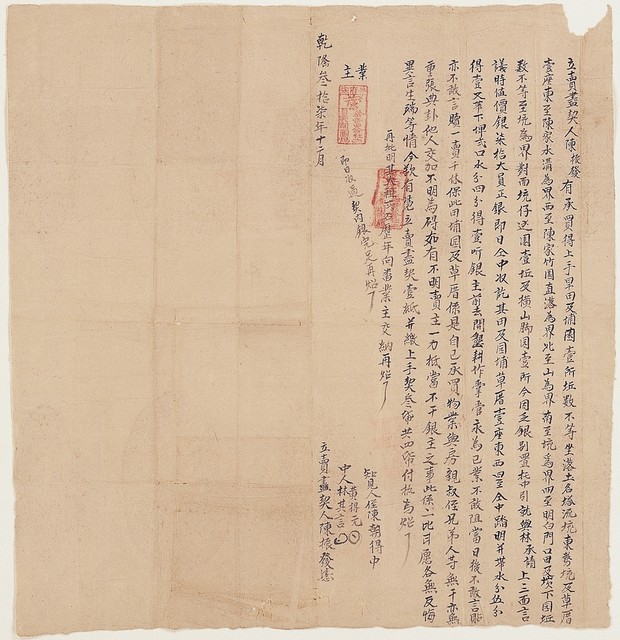 立賣盡契人陳振發有承買得上手旱田及埔園壹所坵數不等坐落土名塔流坑東勢坑及草厝
壹座東至陳家水溝為界西至陳家竹園直落為界北至山為界南至坑為界四至明白門口田及墘下園坵
數不等至坑為界對面坑仔边園壹坵及橫山腳園壹所今因乏銀別置托中引就與林承讀上三面言
議時值價銀柒拾大員正銀即日仝中收訖其田及園埔草厝壹座東西四至仝中踏明并帶水分伍分
得壹又草下埤貳口水分四分得壹听銀主前去開墾耕作掌管永為己業不敢阻當日後不敢言貼
亦不敢言贖一賣千休保此田埔園及草厝係是自己承買物業與房親叔侄兄弟人等無干亦無
重張典卦他人交加不明為碍如有不明賣主一力抵當不干銀主之事此係二比甘愿各無反悔
異言生端等情今欲有憑立賣盡契壹紙并繳上手契叁帋共四帋付执為炤
再批明其大租 歷年向當業主交納再炤
即日收過契內銀完足再炤
知見人侄陳朝得中
黃得元
中人林其言
立賣盡契人陳振發
業主
乾隆叁拾柒年十二月